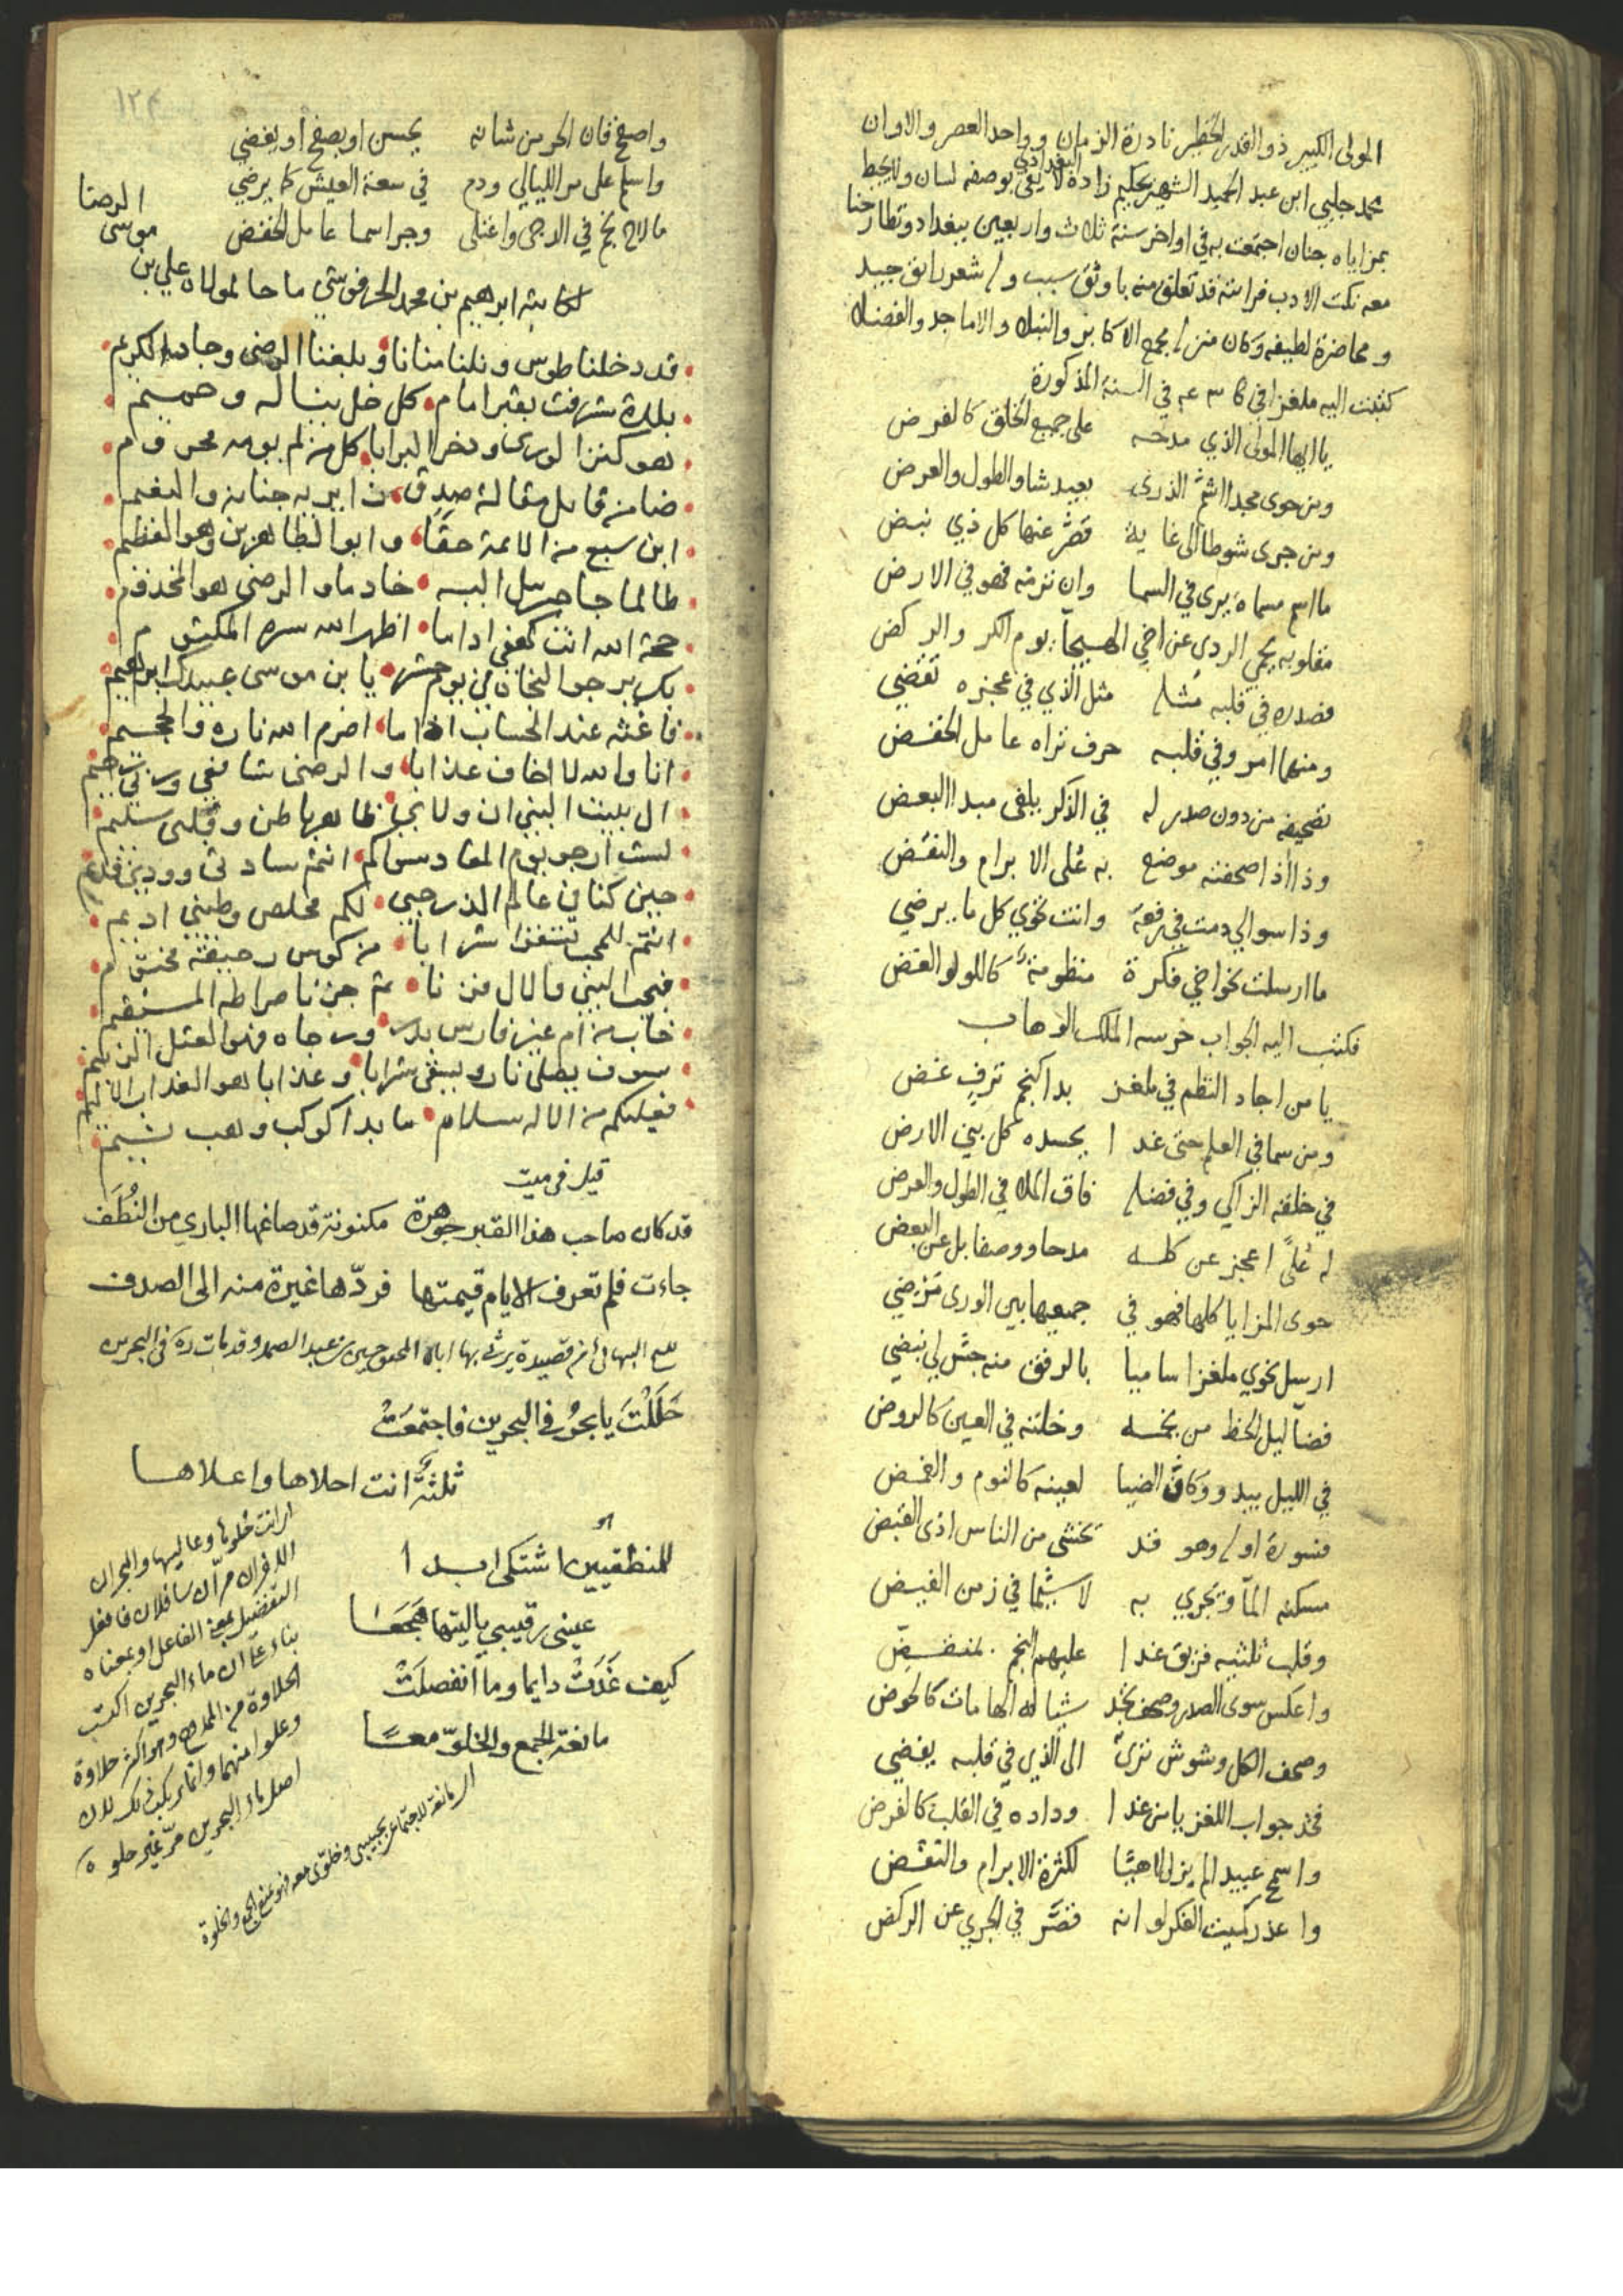 المولى الكبير ذو القدر الخطير نادرة الزمان وواحد العصر والاوان
محمد جلبي ابن عبد الحميد الشهير بحكيم زاده البغدادي لا يفي بوصفه لسان ولا يحيط
بمزاياه جنان اجتمعت به في اواخر سنة ثلاث واربعين ببغداد وتطارحنا
معه نكت الادب فرايته قد تعلق منه باوثق سبب وله شعر رايق جيد
ومحاضرة لطيفه وكان منزله مجمع الاكابر والنبلا والاماجد والفضلا
كتبت اليه ملغزا في في السنة المذكورة
يا ايها المولى الذي مدحه على جميع الخلق كالفرض
ومن حوى مجدا اشم الذرى بعيد شاو الطول والعرض
ومن جرى شوطا الى غاية قصر عنها كل ذي نبض
ما اسم مسماه يرى في السما وان ترمه فهو في الارض
مقلوبه يحمي الردى عن اخي الهيجآ يوم الكر والركض
فصدره في قلبه مثله مثل الذي في عجزه تقضي
ومنها امر وفي قلبه حرف تراه عامل الخفض
تصحيفه من دون صدر له في الذكر يلفى مبدا البعض
وذا اذا صحفته موضع به على الابرام والنقض
وذا سوالي دمت في رفعة وانت تحوي كل ما يرضي
ما ارسلت نحو اخي فكرة منظومة كاللولو الغض
فكتب اليه الجواب حرسه الملك الوهاب
يا من اجاد النظم في ملغز بدا كنجم ترف غض
ومن سما في العلم حتى غدا يحسده كل بني الارض
في خلقه الزاكي وفي فضله فاق الملا في الطول والعرض
له على اعجز عن كله مدحا ووصفا بل عن البعض
حوى المزايا كلها فهو في جميعها بين الورى مرضي
ارسل نحوي ملغزا ساميا بالرفق منه جس لي نبضي
فضآ ليل الحظ من نجمه وخلته في العين كالروض
في الليل يبدو وكاف الضيا لعينه كالنوم والغمض
فسورة اوله وهو قد تخشى من الناس اذى القبض
مسكنه المآ وتجري به لا سيما في زمن الفيض
وقلب ثلثيه فريق غدا عليهم النجم بمنقض
واعكس سوى الصدر وصحف تجد شبا له الهامات كالحوض
وصحف الكل وشوش ترى الى الذي في قلبه يفضي
فخذ جواب اللغز يا من غدا وداده في القلب كالفرض
واسمح عبيدا لم يزل لاهبا لكثرة الابرام والنقض
واعذر كميت الفكر لو انه قصر في الجري عن الركض
١٢٤
واصفح فان الحر من شانه يحسن او يصفح او يغضي
واسلم على مر الليالي ودم في سعة العيش كما يرضي
ما لاح نجم في الدجى واعتلى وجر اسما عامل الخفض
لكاتبه ابرهيم بن محمد الحرفوشي مادحا لمولاه علي بن موسى الرضا
قد دخلنا طوس ونلنا منانا وبلغنا الرضى وجاد الكريم
بلدة شرفت بقبر امام كل خل بنا له وحميم
هو كنز الورى وذخر البرايا كل من لم يومه محروم
ضامن قايل مقالة صدق زايريه جنانه والنعيم
ابن سبع من الائمة حقا وابو الطاهرين وهو العظيم
طالما جا جبرئيل اليه خادما والرضى هو المخدوم
حجة الله انت كهفي اذا ما اظهر الله سره المكتوم
بك يرجو النجاة في يوم حشر يا بن موسى عبيدك ابراهيم
فاغثه عند الحساب اذا ما اضرم الله ناره والجحيم
انا والله لا اخاف عذابا والرضى شافعي وربي رحيم
ال بيت النبي ان ولائي ظاهر باطن وقلبي سليم
لست ارجو يوم المعاد سواكم انتم سادتي وودي قديم
حين كنا في عالم الذر حبي لكم مخلص وطيني اديم
انتم للمحب تسقوا شرابا من كوس رحيقه مختوم
فبحب النبي والال فزنا ثم جزنا صراطه المستقيم
خاب من ام غير فارس بدر ورجاه فهو العتل الزنيم
سوف يصلى نارا ويسقى شرابا وعذابا هو العذاب الاليم
فعليكم من الاله سلام ما بدا كوكب وهب نسيم
قيل في ميت
قد كان صاحب هذا القبر جوهرة مكنونة قد صاغها الباري من النطف
جاءت فلم تعرف الايام قيمتها فردّها غيرة منه الى الصدف
للشيخ البهائي من قصيدة يرثي بها اباه المحقق حسين بن عبد الصمد وقد مات ره في البحرين
حَلَلْتَ يا بحرُ في البحرين فاجتمعَتْ
ثلثةٌ انت احلاها واعلاها
للمنطقيين اشتكى ابدا
عينى رقيبي ياليتها هجعا
كيف غَدَتْ دايما وما انفصلَتْ
مانعة الجمع والخلوّ معا
التفضيل بمعنى الفاعل او بمعناه
بناء على ان ماء البحرين اكتسب
الحلاوة من الممدوح وهو اكثر حلاوة
اصل ماء البحرين مرّ غير حلو